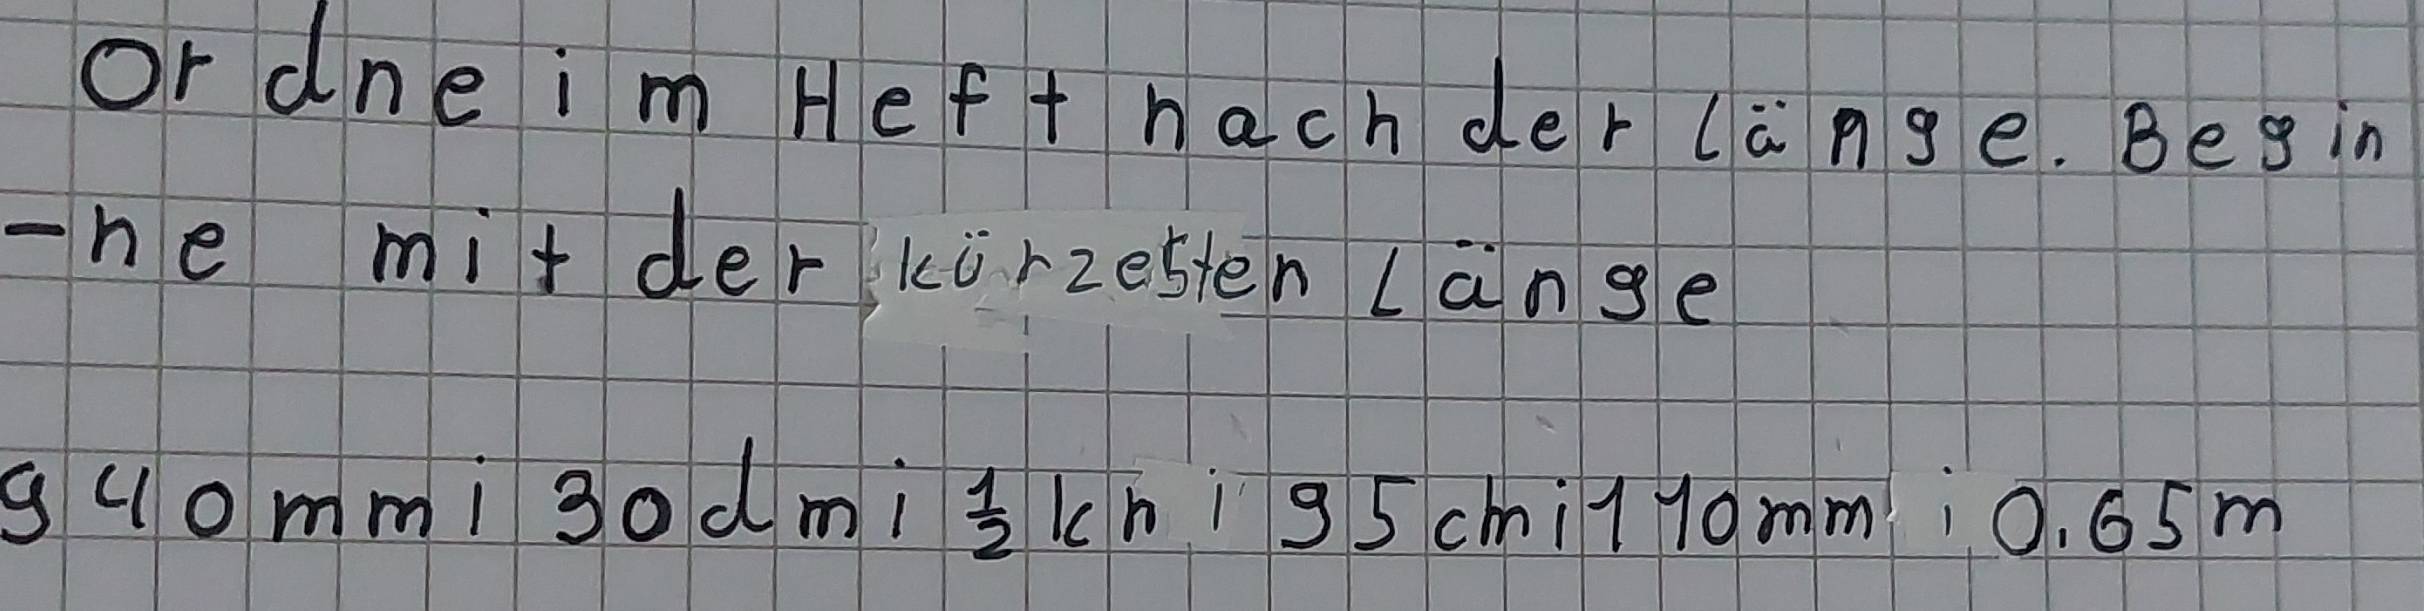 Ordne im Heft nach der Länge. Begin
-ne mit der kürzesten Länge
940mm; 30dm; ½ km; 95cm; 110mm; 0.65m